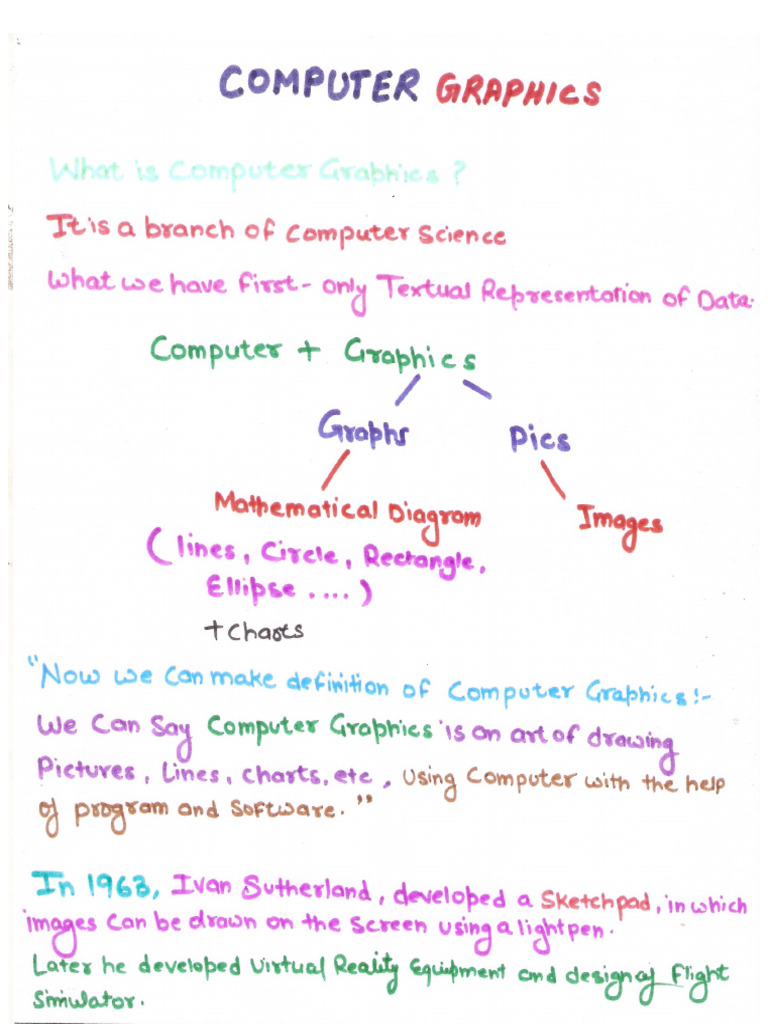 COMPUTER GRAPHICS
What is Computer Graphics ?
It is a branch of Computer Science
What we have first - only Textual Representation of Data.
Computer + Graphics
Graphs Pics
Mathematical Diagram Images
(lines, Circle, Rectangle,
Ellipse ....)
+ Charts
"Now we can make definition of Computer Graphics:-
We Can Say Computer Graphics is an art of drawing
Pictures, Lines, charts, etc, using Computer with the help
of program and Software."
In 1963, Ivan Sutherland, developed a Sketchpad, in which
images can be drawn on the screen using a lightpen.
Later he developed Virtual Reality Equipment and design of flight
Simulator.